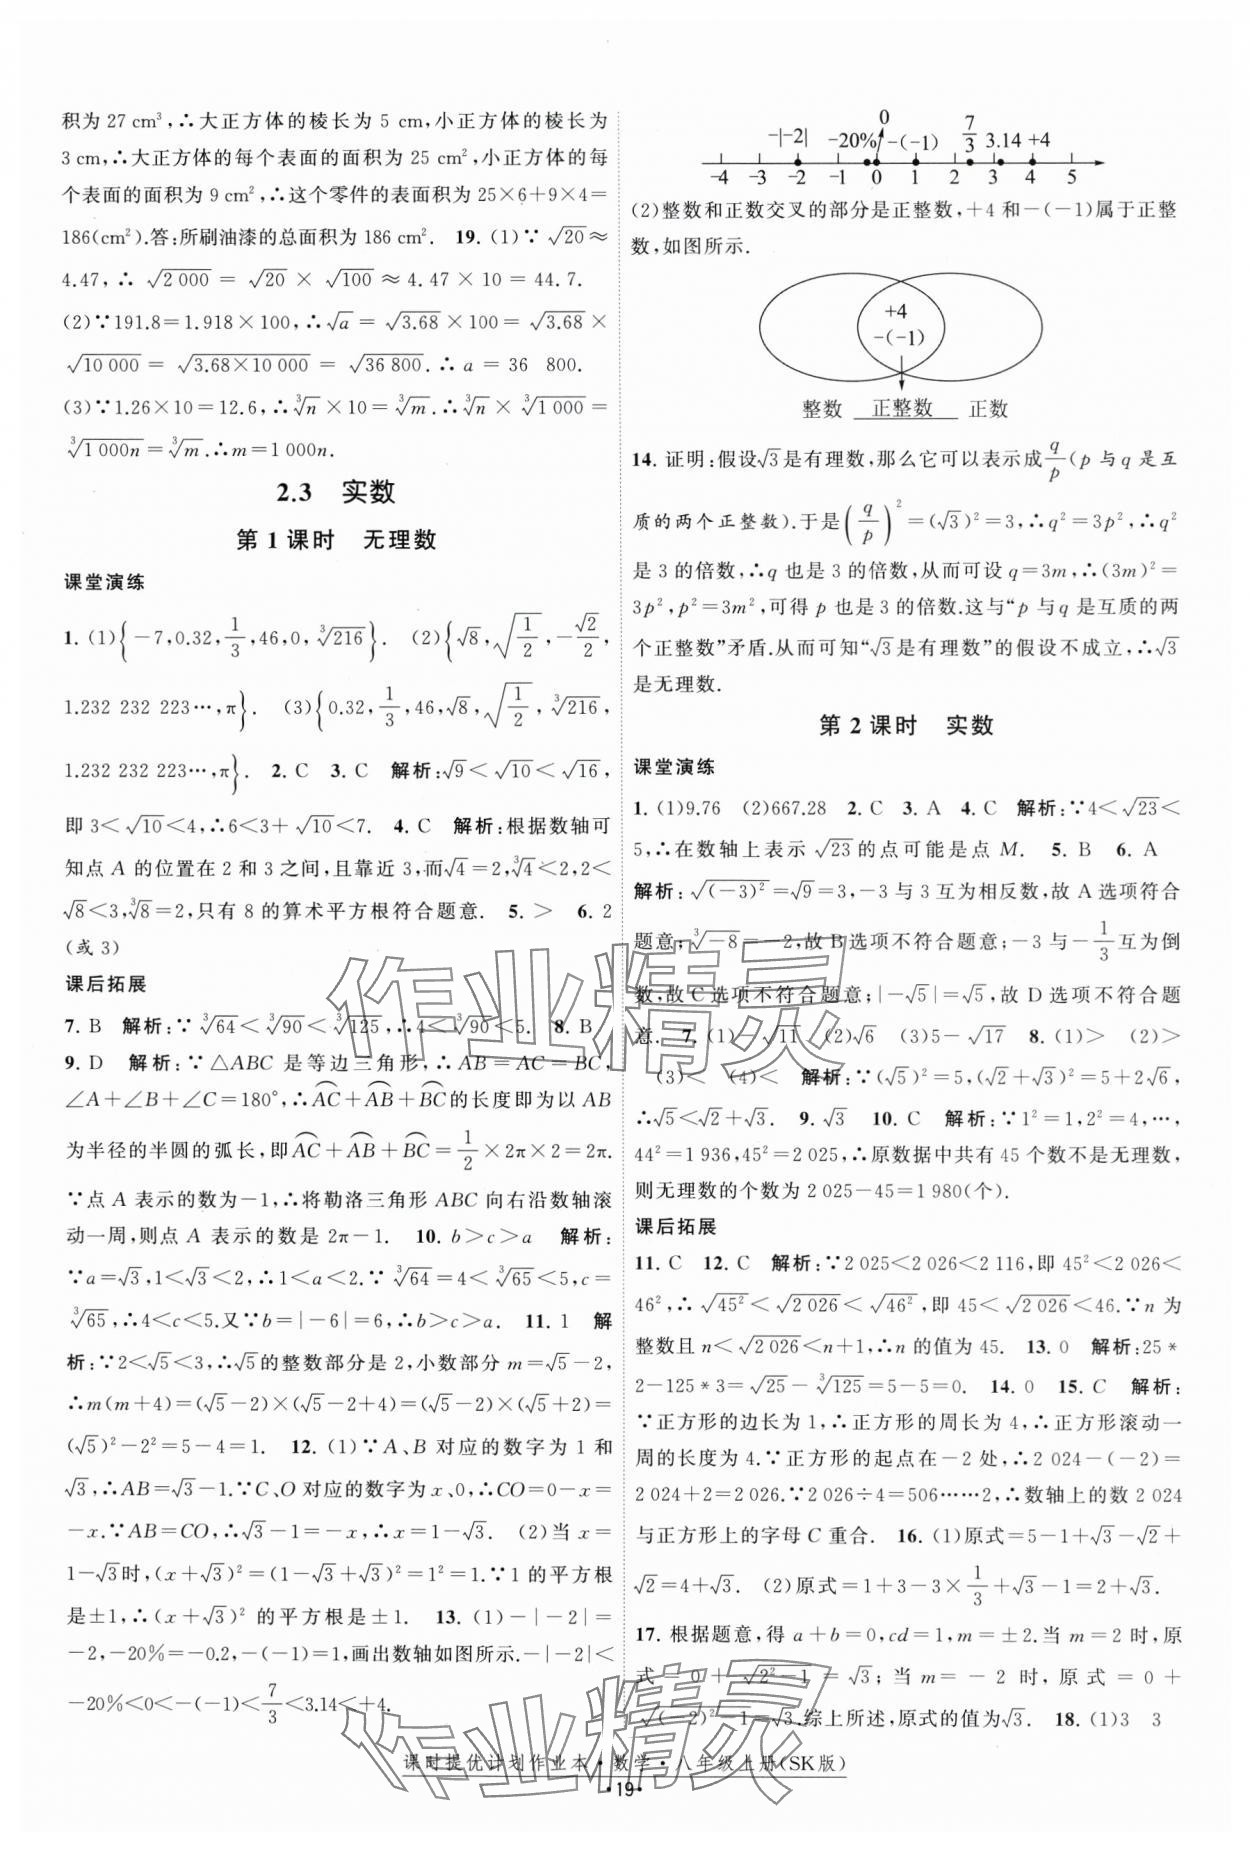 积为 27 cm³,∴大正方体的棱长为 5 cm,小正方体的棱长为
3 cm,∴大正方体的每个表面的面积为 25 cm²,小正方体的每
个表面的面积为 9 cm²,∴这个零件的表面积为 25×6+9×4=
186(cm²).答:所刷油漆的总面积为 186 cm². 19. (1)∵√20≈
4.47,∴ √2 000 = √20 × √100 ≈ 4.47 × 10 = 44.7.
(2)∵191.8=1.918×100,∴√a = √3.68 ×100= √3.68 ×
√10 000 = √3.68×10 000 = √36 800.∴ a = 36 800.
(3)∵1.26×10=12.6,∴∛n ×10=∛m.∴∛n ×∛1 000=
∛1 000n=∛m.∴m=1 000n.
2.3 实数
第 1 课时 无理数
课堂演练
1. (1){-7,0.32,1/3,46,0,∛216}. (2){√8,√(1/2),-√2/2,
1.232 232 223…,π}. (3){0.32,1/3,46,√8,√(1/2),∛216,
1.232 232 223…,π}. 2. C 3. C 解析:√9<√10<√16,
即 3<√10<4,∴6<3+√10<7. 4. C 解析:根据数轴可
知点 A 的位置在 2 和 3 之间,且靠近 3,而√4=2,∛4<2,2<
√8<3,∛8=2,只有 8 的算术平方根符合题意. 5. > 6. 2
(或 3)
课后拓展
7. B 解析:∵∛64<∛90<∛125,∴4<∛90<5. 8. B
9. D 解析:∵△ABC 是等边三角形,∴AB=AC=BC,
∠A+∠B+∠C=180°,∴⌒AC+⌒AB+⌒BC的长度即为以 AB
为半径的半圆的弧长,即⌒AC+⌒AB+⌒BC=1/2×2π×2=2π.
∵点 A 表示的数为-1,∴将勒洛三角形 ABC 向右沿数轴滚
动一周,则点 A 表示的数是 2π-1. 10. b>c>a 解析:
∵a=√3,1<√3<2,∴1<a<2.∵∛64=4<∛65<5,c=
∛65,∴4<c<5.又∵b=|-6|=6,∴b>c>a. 11. 1 解
析:∵2<√5<3,∴√5的整数部分是 2,小数部分 m=√5-2,
∴m(m+4)=(√5-2)×(√5-2+4)=(√5-2)×(√5+2)=
(√5)²-2²=5-4=1. 12. (1)∵A、B 对应的数字为 1 和
√3,∴AB=√3-1.∵C、O 对应的数字为 x、0,∴CO=0-x=
-x.∵AB=CO,∴√3-1=-x,∴x=1-√3. (2)当 x=
1-√3时,(x+√3)²=(1-√3+√3)²=1²=1.∵1 的平方根
是±1,∴(x+√3)² 的平方根是±1. 13. (1)-|-2|=
-2,-20%=-0.2,-(-1)=1,画出数轴如图所示.-|-2|<
-20%<0<-(-1)<7/3<3.14<+4.
-|-2| -20% 0 -(-1) 7/3 3.14 +4
-4 -3 -2 -1 0 1 2 3 4 5
(2)整数和正数交叉的部分是正整数,+4 和-(-1)属于正整
数,如图所示.
+4
-(-1)
整数 正整数 正数
14. 证明:假设√3是有理数,那么它可以表示成q/p(p 与 q 是互
质的两个正整数).于是(q/p)²=(√3)²=3,∴q²=3p²,∴q²
是 3 的倍数,∴q 也是 3 的倍数,从而可设 q=3m,∴(3m)²=
3p²,p²=3m²,可得 p 也是 3 的倍数.这与“p 与 q 是互质的两
个正整数”矛盾.从而可知“√3是有理数”的假设不成立,∴√3
是无理数.
第 2 课时 实数
课堂演练
1. (1)9.76 (2)667.28 2. C 3. A 4. C 解析:∵4<√23<
5,∴在数轴上表示√23的点可能是点 M. 5. B 6. A
解析:√(-3)²=√9=3,-3 与 3 互为相反数,故 A 选项符合
题意;∛-8=-2,故 B 选项不符合题意;-3 与-1/3互为倒
数,故 C 选项不符合题意;|-√5|=√5,故 D 选项不符合题
意. 7. (1)-√11 (2)√6 (3)5-√17 8. (1)> (2)>
(3)< (4)< 解析:∵(√5)²=5,(√2+√3)²=5+2√6,
∴√5<√2+√3. 9. √3 10. C 解析:∵1²=1,2²=4,…,
44²=1 936,45²=2 025,∴原数据中共有 45 个数不是无理数,
则无理数的个数为 2 025-45=1 980(个).
课后拓展
11. C 12. C 解析:∵2 025<2 026<2 116,即 45²<2 026<
46²,∴√45²<√2 026<√46²,即 45<√2 026<46.∵n 为
整数且 n<√2 026<n+1,∴n 的值为 45. 13. 0 解析:25 *
2-125 * 3=√25-∛125=5-5=0. 14. 0 15. C 解析:
∵正方形的边长为 1,∴正方形的周长为 4,∴正方形滚动一
周的长度为 4.∵正方形的起点在-2 处,∴2 024-(-2)=
2 024+2=2 026.∵2 026÷4=506……2,∴数轴上的数 2 024
与正方形上的字母 C 重合. 16. (1)原式=5-1+√3-√2+
√2=4+√3. (2)原式=1+3-3×1/3+√3-1=2+√3.
17. 根据题意,得 a+b=0,cd=1,m=±2.当 m=2 时,原
式 = 0 + √2²-1 = √3;当 m = -2 时,原式 = 0 +
√(-2)²-1=√3.综上所述,原式的值为√3. 18. (1)3 3
课时提优计划作业本·数学·八年级上册(SK版)
·19·
作业精灵
作业精灵